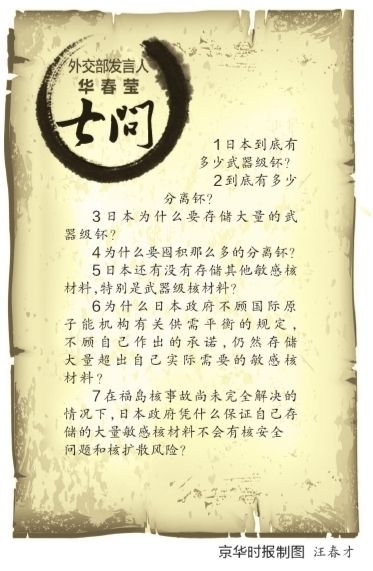 外交部发言人
华春莹
七问
1日本到底有
多少武器级钚?
2到底有多少
分离钚?
3日本为什么要存储大量的武
器级钚?
4为什么要囤积那么多的分离钚?
5日本还有没有存储其他敏感核
材料,特别是武器级核材料?
6为什么日本政府不顾国际原
子能机构有关供需平衡的规定,
不顾自己作出的承诺,仍然存储
大量超出自己实际需要的敏感核
材料?
7在福岛核事故尚未完全解决的
情况下,日本政府凭什么保证自己存
储的大量敏感核材料不会有核安全
问题和核扩散风险?
京华时报制图 汪春才